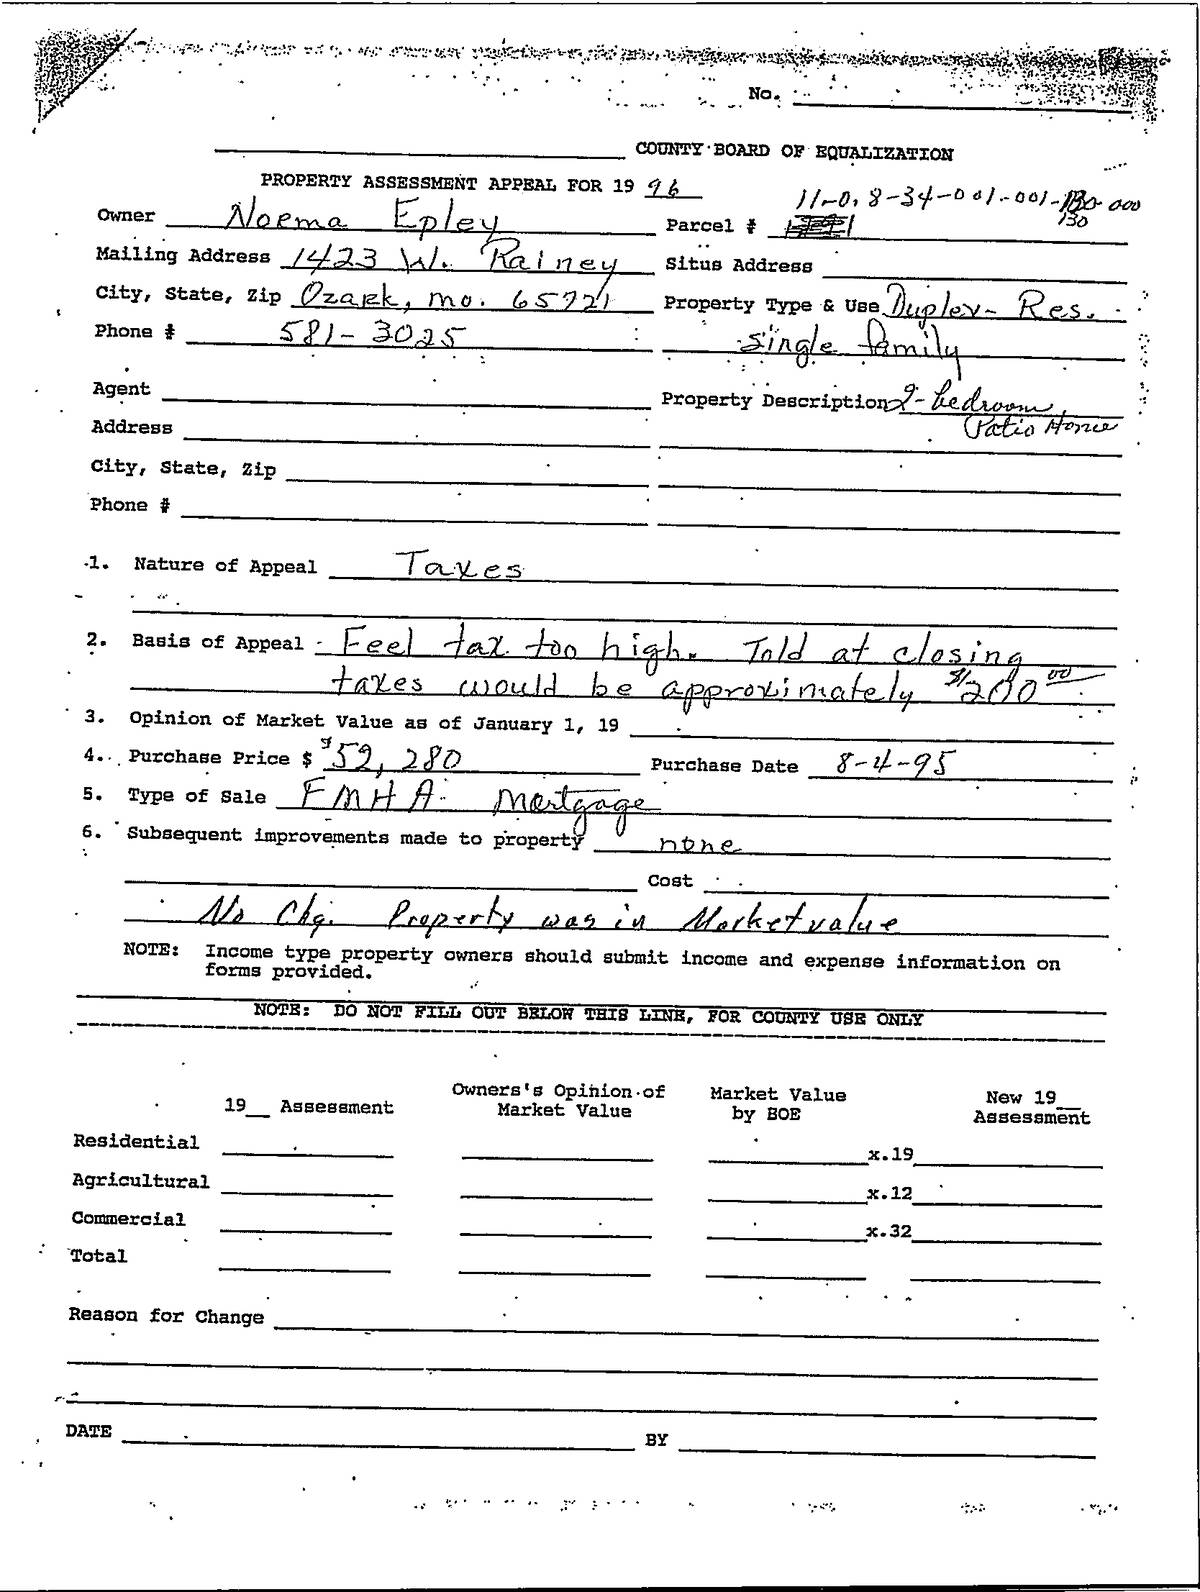 No.
COUNTY BOARD OF EQUALIZATION
PROPERTY ASSESSMENT APPEAL FOR 19 96
11-0.8-34-001-001-130-000
130
Owner Noema Epley Parcel #
Mailing Address 1423 W. Rainey Situs Address
City, State, Zip Ozark, mo. 65721 Property Type & Use Duplex- Res.
Phone # 581-3025 single family
Agent Property Description 2-bedroom
Address Patio Home
City, State, Zip
Phone #
1. Nature of Appeal Taxes
2. Basis of Appeal - Feel tax too high. Told at closing
taxes would be approximately $200 00
3. Opinion of Market Value as of January 1, 19
4. Purchase Price $ $52,280 Purchase Date 8-4-95
5. Type of Sale FMHA Mortgage
6. Subsequent improvements made to property none
Cost
No Chg. Property was in Market value
NOTE: Income type property owners should submit income and expense information on
forms provided.
NOTE: DO NOT FILL OUT BELOW THIS LINE, FOR COUNTY USE ONLY
19__ Assessment Owners's Opinion of Market Value Market Value by BOE New 19__ Assessment
Residential x.19
Agricultural x.12
Commercial x.32
Total
Reason for Change
DATE BY